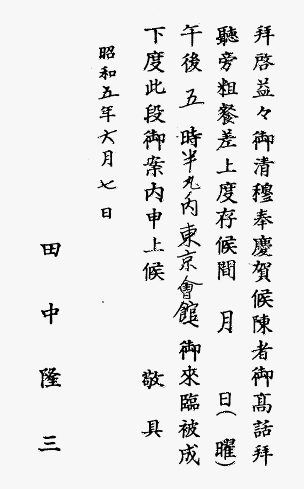 拝啓益々御清穆奉慶賀候陳者御高話拝
聴旁粗餐差上度存候間　月　日(　曜)
午後五時半丸ノ内東京會館へ御來臨被成
下度此段御案内申上候　敬具
昭和五年六月七日
田中隆三